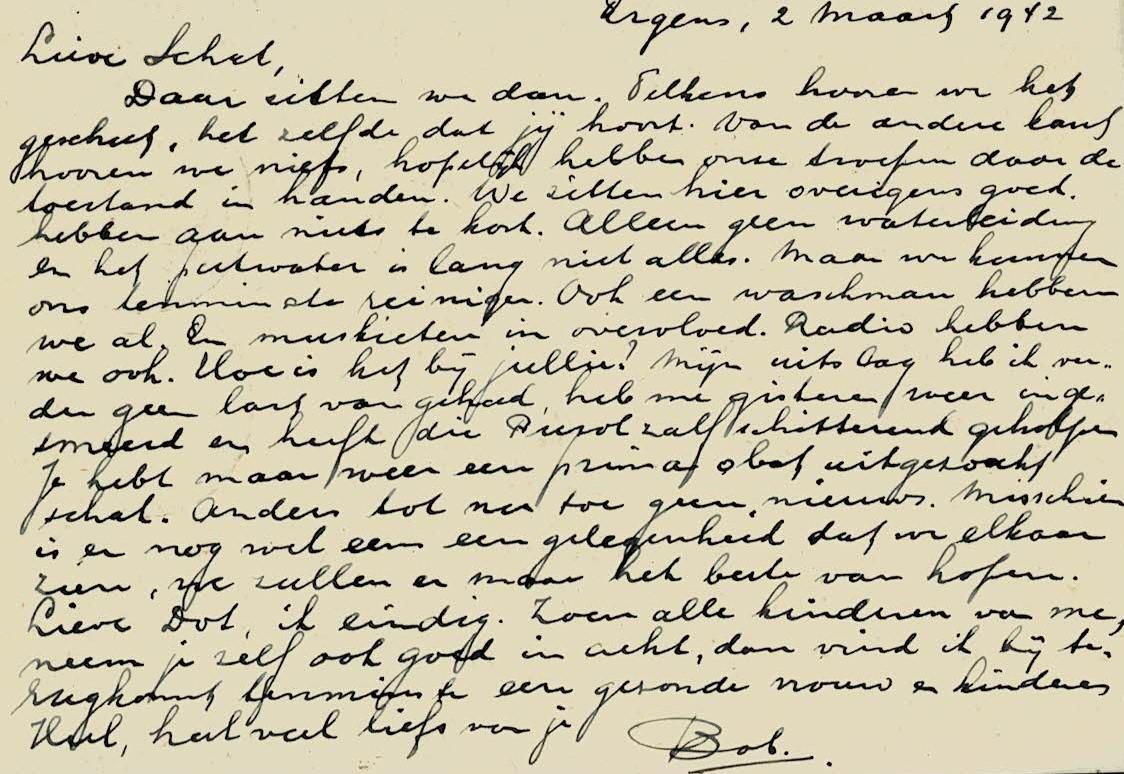 Ergens, 2 Maart 1942
Lieve Schat,
Daar zitten we dan. Telkens hooren we het
geschut, het zelfde dat jij hoort. Van de andere kant
hooren we niets, hopelijk hebben onze troepen daar de
toestand in handen. We zitten hier overigens goed.
hebben aan niets te kort. Alleen geen waterleiding
en het putwater is lang niet alles. Maar we kunnen
ons tenminste reinigen. Ook een waschman hebben
we al. En muskieten in overvloed. Radio hebben
we ook. Hoe is het bij jullie? Mijn uitslag heb ik ver-
der geen last van gehad, heb me gisteren weer inge-
smeerd en heeft die Purol zalf schitterend geholpen
Je hebt maar weer een prima obat uitgezocht
schat. Anders tot nu toe geen nieuws. Misschien
is er nog wel eens een gelegenheid dat we elkaar
zien, we zullen er maar het beste van hopen.
Lieve Dot, ik eindig. Zoen alle kinderen van me,
neem je zelf ook goed in acht, dan vind ik bij te-
rugkomst tenminste een gezonde vrouw en kinderen
Heel, heel veel liefs van je
Bob.